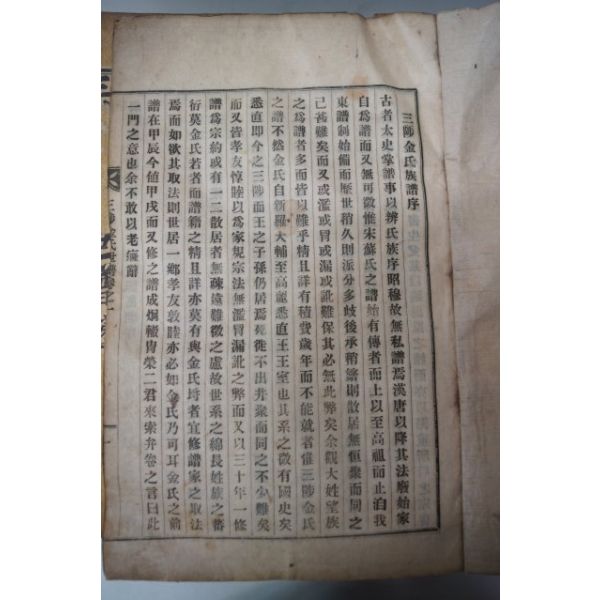 三陟金氏族譜序
古者太史掌譜事以辨氏族序昭穆故無私譜焉漢唐以降其法廢始家
自爲譜而又無可徵惟宋蘇氏之譜始有傳者而上以至高祖而止洎我
東譜制始備而歷世稍久則派分多歧後承稍繁則散居無恒聚而同之
已甚難矣而又或濫或冒或漏或訛難保其必無此弊矣余觀大姓望族
之爲譜者多而皆以難乎精且詳有積費歲年而不能就者惟三陟金氏
之譜不然金氏自新羅大輔至高麗悉直王王室也其系之徵有國史矣
悉直即今之三陟而王之子孫仍居焉死徙不出井聚而同之不少難矣
而又皆孝友惇睦以爲家規宗法無濫冒漏訛之弊而又以三十年一修
譜爲宗約或有一二散居者無疎遠難徵之慮故世系之綿長姓族之蕃
衍莫金氏若者而譜籍之精且詳亦莫有與金氏埒者宜修譜家之取法
焉而如欲其取法則世居一鄕孝友敦睦亦必如金氏乃可耳金氏之前
譜在甲辰今値甲戌而又修之譜成烱轍冑榮二君來索弁卷之言曰此
一門之意也余不敢以老癃辭
三陟金氏世譜卷之一